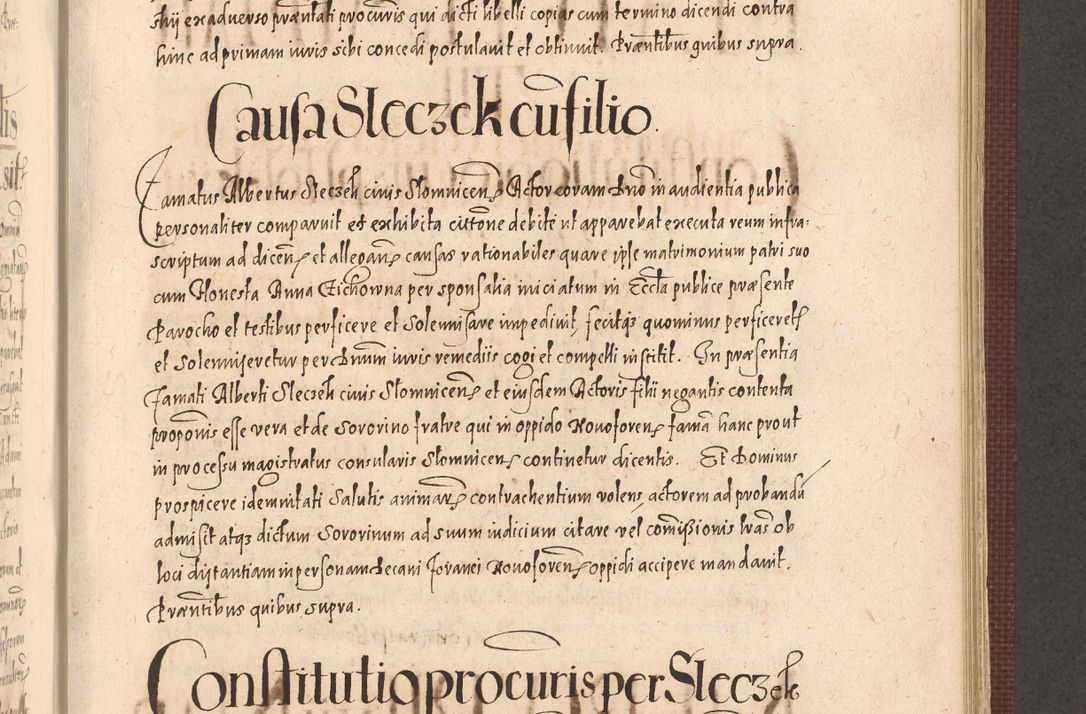 shij ex adverso præntati procuris qui dicti libelli copias cum termino dicendi contra
hinc ad primam iuris sibi concedi postulavit et obtinuit. Præntibus quibus supra.
Causa Sleczek cū filio.
Famatus Albertus Sleczek civis Slomnicen̄ Actor coram dno in audientia publica
personaliter comparuit et exhibita citōne debite ut apparebat executa reum infra:
scriptum ad dicen̄ et allegan̄ causas rationabiles quare ipse matrimonium patri suo
cum Honesta Anna Cichowna per sponsalia iniciatum in Eccła publice præsente
Parocho et testibus perficere et Solemnisare impedivit, fecitqȝ quominus perficeret
et Solemniseretur per dnum iuris remediis cogi et compelli institit. In præsentia
Famati Alberti Sleczek civis Slomnicen̄ et eiusdem Actoris filii negantis contenta
proponis esse vera et de Sororino fratre qui in oppido Novoforen̄ famā hanc prout
in processu magistratus consularis Slomnicen̄ continetur dicentis. Et Dominus
prospicere idemnitati Salutis animar̄ contrachentium volens, actorem ad probandū
admisit atqȝ dictum Sororinum ad suum iudicium citare vel comissionis lras ob
loci distantiam in personam decani Novoforen̄ oppidi accipere mandavit.
Præntibus quibus supra.
Constitutio procuris per Sleczek